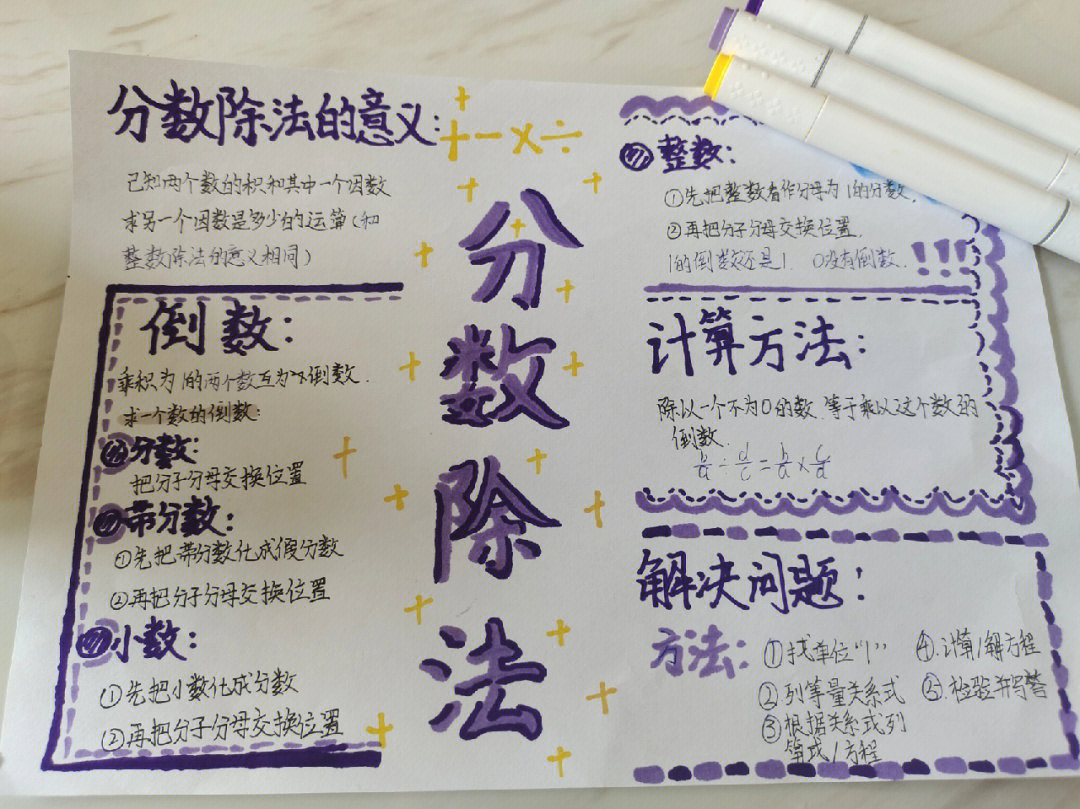 分数除法的意义:
+-×÷
已知两个数的积和其中一个因数
求另一个因数是多少的运算(和
整数除法的意义相同)
倒数:
乘积为1的两个数互为倒数.
求一个数的倒数:
分数:
把分子分母交换位置
带分数:
①先把带分数化成假分数
②再把分子分母交换位置
小数:
①先把小数化成分数
②再把分子分母交换位置
分
数
除
法
整数:
①先把整数看作分母为1的分数,
②再把分子分母交换位置.
1的倒数还是1. 0没有倒数. !!!
计算方法:
除以一个不为0的数,等于乘以这个数的
倒数.
b/a ÷ d/c = b/a × c/d
解决问题:
方法:
①找单位“1”
②列等量关系式
③根据关系式列
算式/方程
④.计算/解方程
⑤.检验并写答